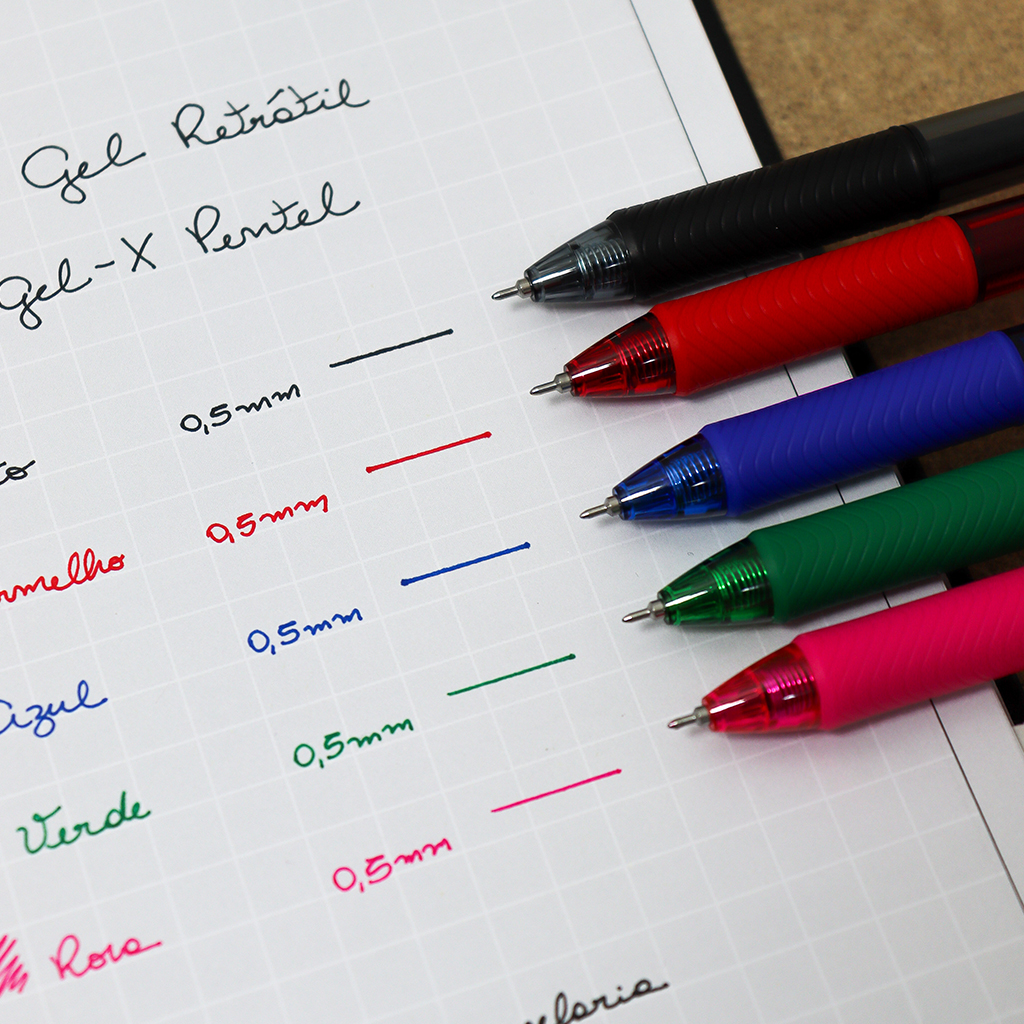 Gel Retrátil
Gel-X Pentel
0,5mm
0,5mm
0,5mm
Azul 0,5mm
Verde 0,5mm
Rosa